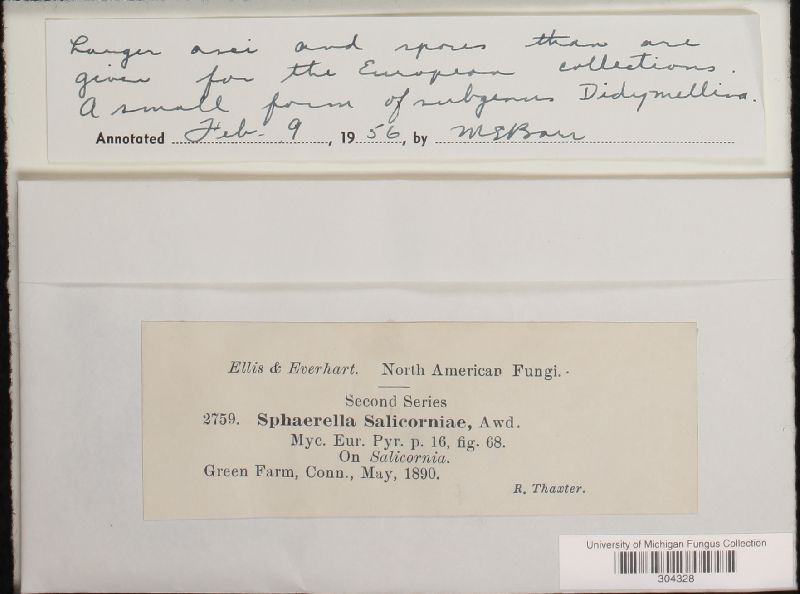 Larger asci and spores than are
given for the European collections.
A small form of subgenus Didymellina.
Annotated Feb. 9, 1956, by M E Barr
Ellis & Everhart. North American Fungi.
Second Series
2759. Sphaerella Salicorniae, Awd.
Myc. Eur. Pyr. p. 16, fig. 68.
On Salicornia.
Green Farm, Conn., May, 1890.
R. Thaxter.
University of Michigan Fungus Collection
304328